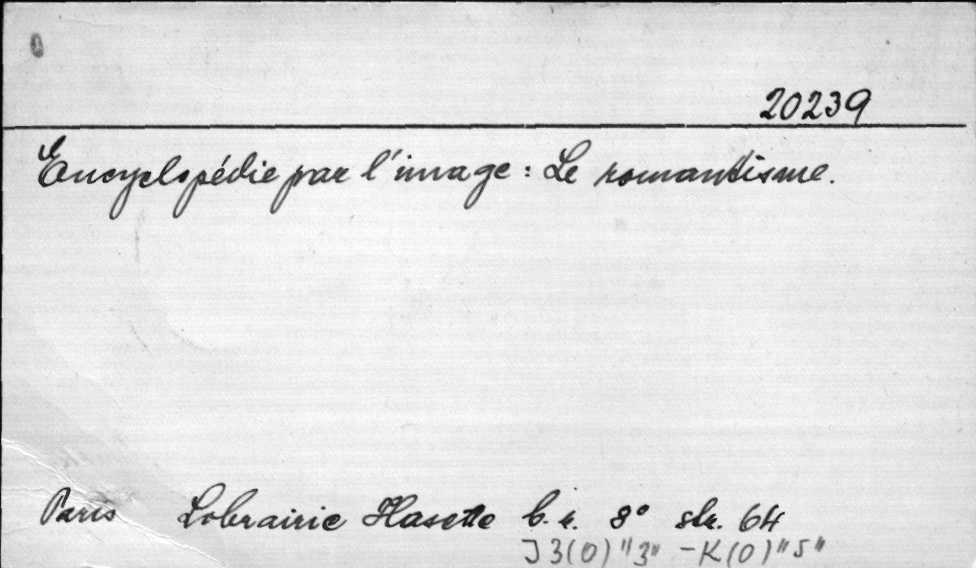 20239
Encyclopédie par l'image : Le romantisme.
Paris Lobrairie Hasette b.r. 8° str. 64
J3(0)"3" - K(0)"5"